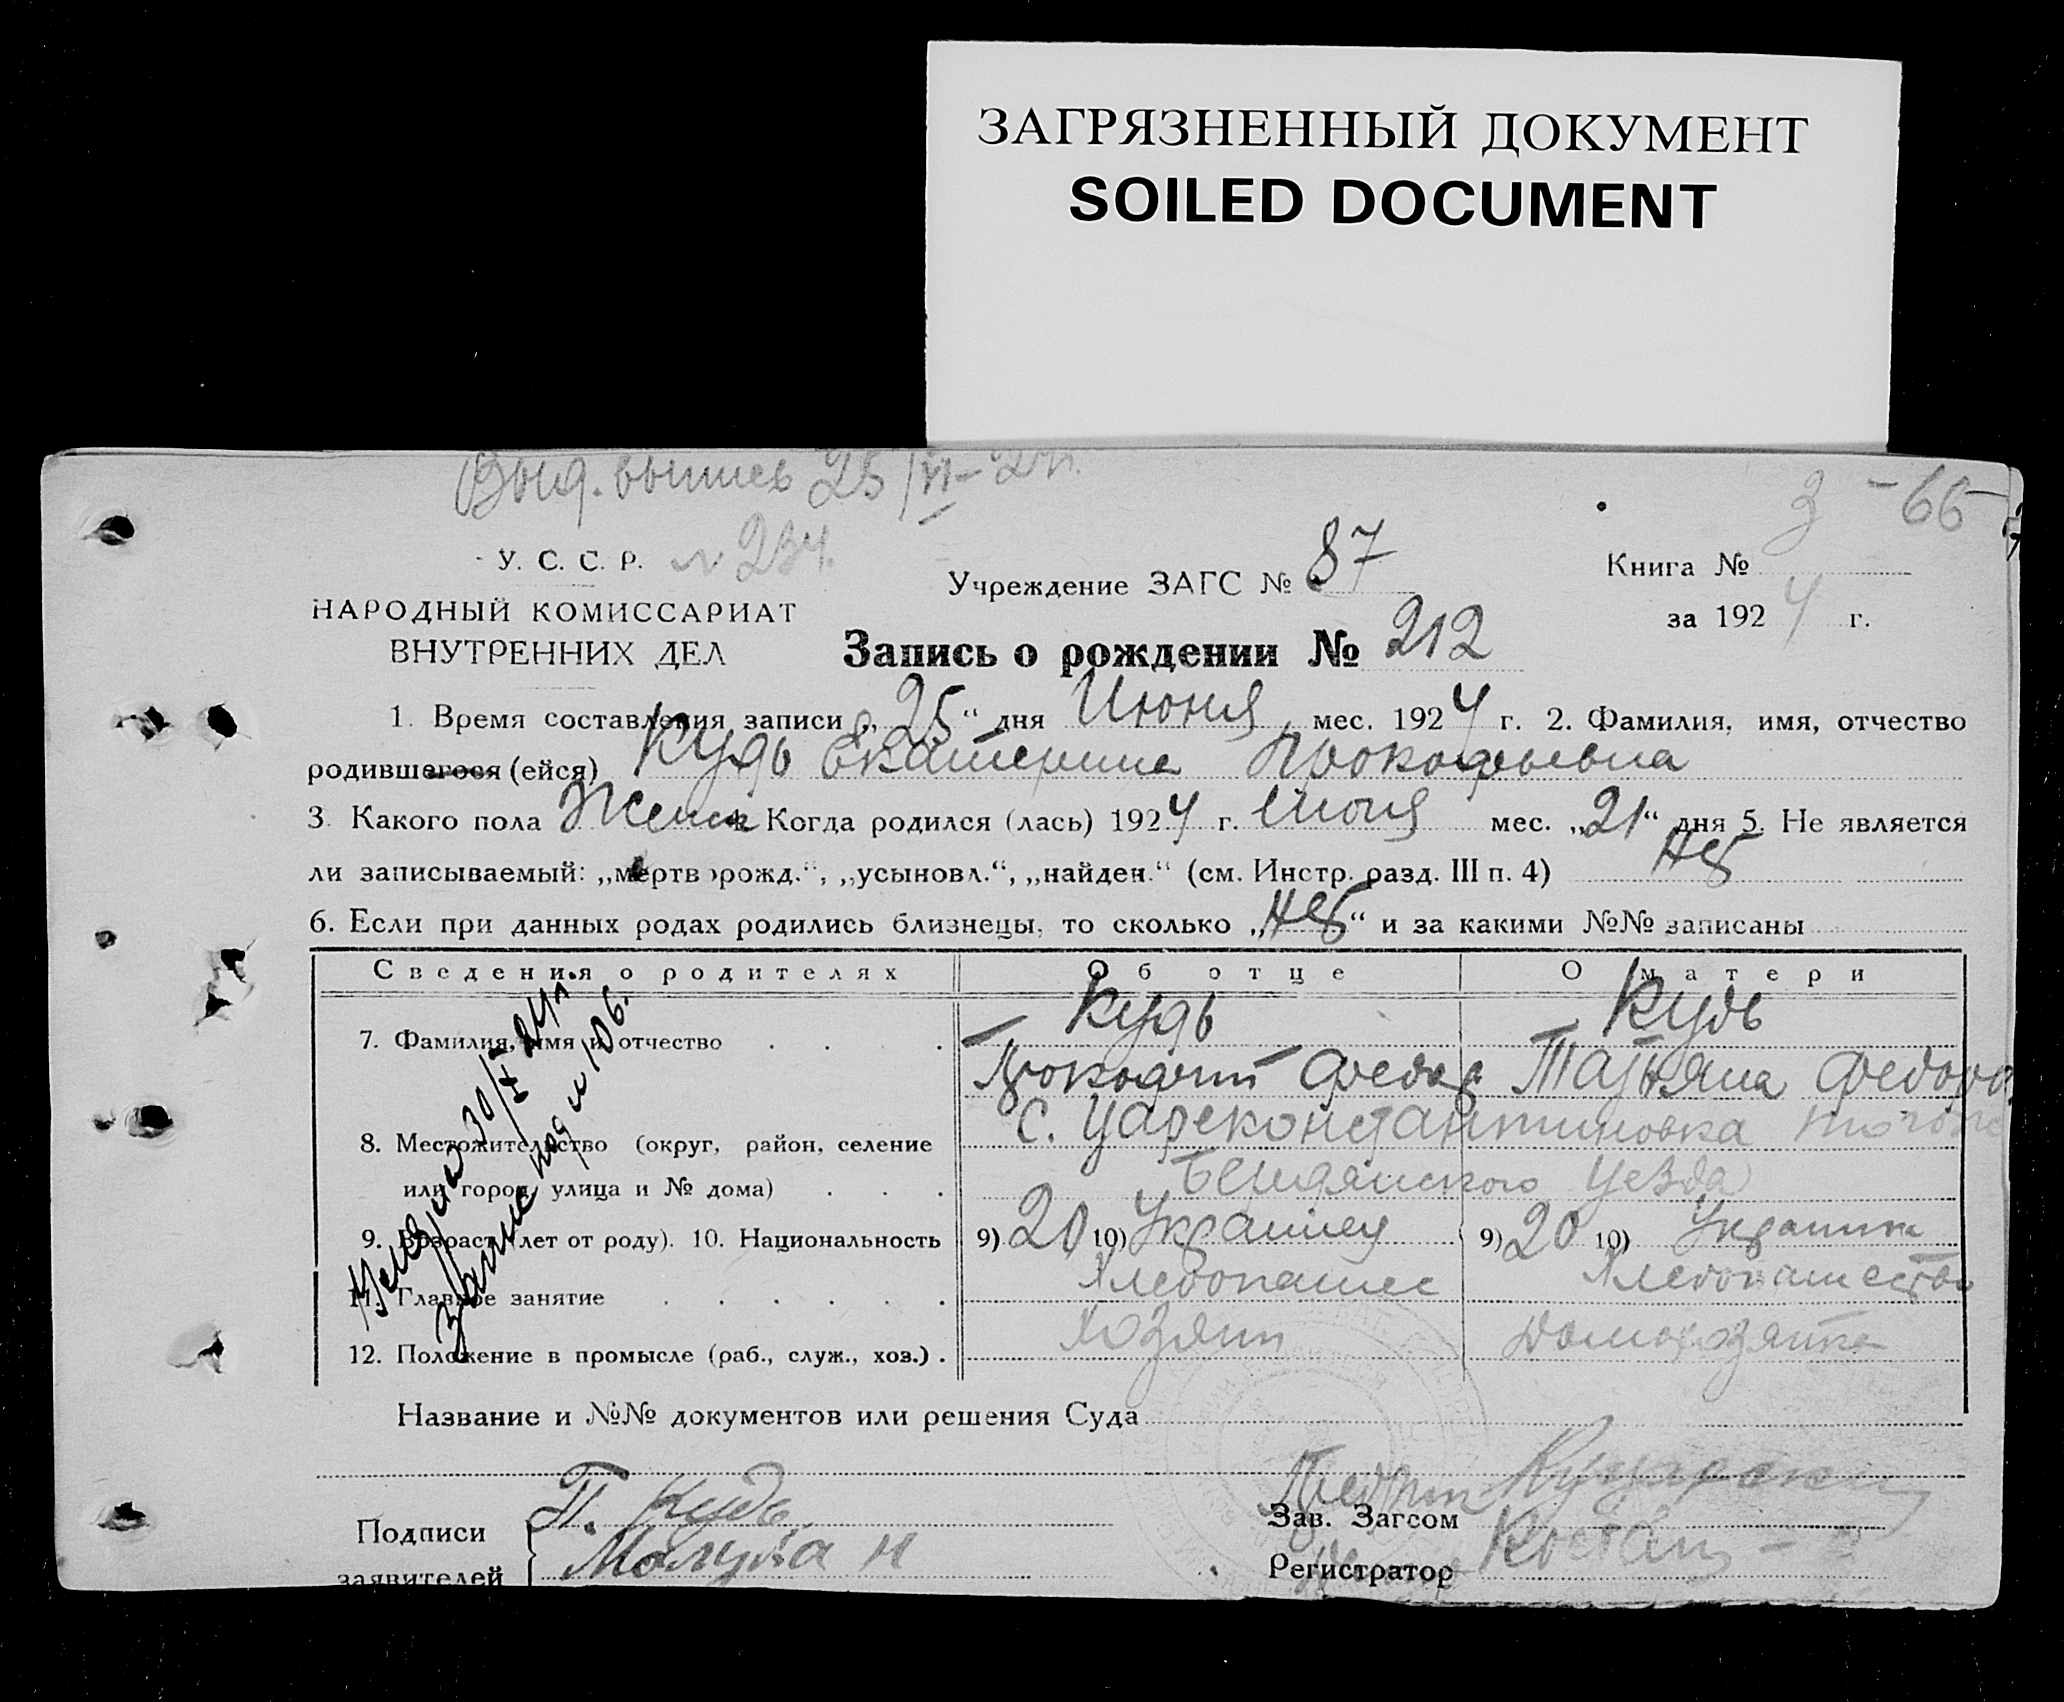 ЗАГРЯЗНЕННЫЙ ДОКУМЕНТ
SOILED DOCUMENT
Выд. выпись 25/VI-24г.
№ 234.
3 - 66
У. С. С. Р.
НАРОДНЫЙ КОМИССАРИАТ
ВНУТРЕННИХ ДЕЛ
Учреждение ЗАГС № 87
Книга №
за 1924 г.
Запись о рождении № 212
1. Время составления записи „25“ дня Июня мес. 1924 г. 2. Фамилия, имя, отчество
родившегося (ейся) Кудь Екатерина Прокофьевна
3. Какого пола Женск Когда родился (лась) 1924 г. Июня мес. „21“ дня 5. Не является
ли записываемый: „мертворожд.“, „усыновл.“, „найден.“ (см. Инстр. разд. III п. 4) нет
6. Если при данных родах родились близнецы, то сколько „нет“ и за какими №№ записаны
Сведения о родителях Об отце О матери
7. Фамилия, имя и отчество
Кудь Кудь
Прокофий Федор Татьяна Федоро
8. Местожительство (округ, район, селение
или город, улица и № дома)
с. Цареконстантиновка
Бердянского уезда
9. Возраст (лет от роду). 10. Национальность 9) 20 10) Украинец 9) 20 10) Украинка
11. Главное занятие Хлебопашес Хлебопашество
12. Положение в промысле (раб., служ., хоз.) Хозяин домохозяйка
30/X 24г.
под № 106.
Название и №№ документов или решения Суда
Подписи
заявителей
П. Кудь
Зав. Загсом
Регистратор